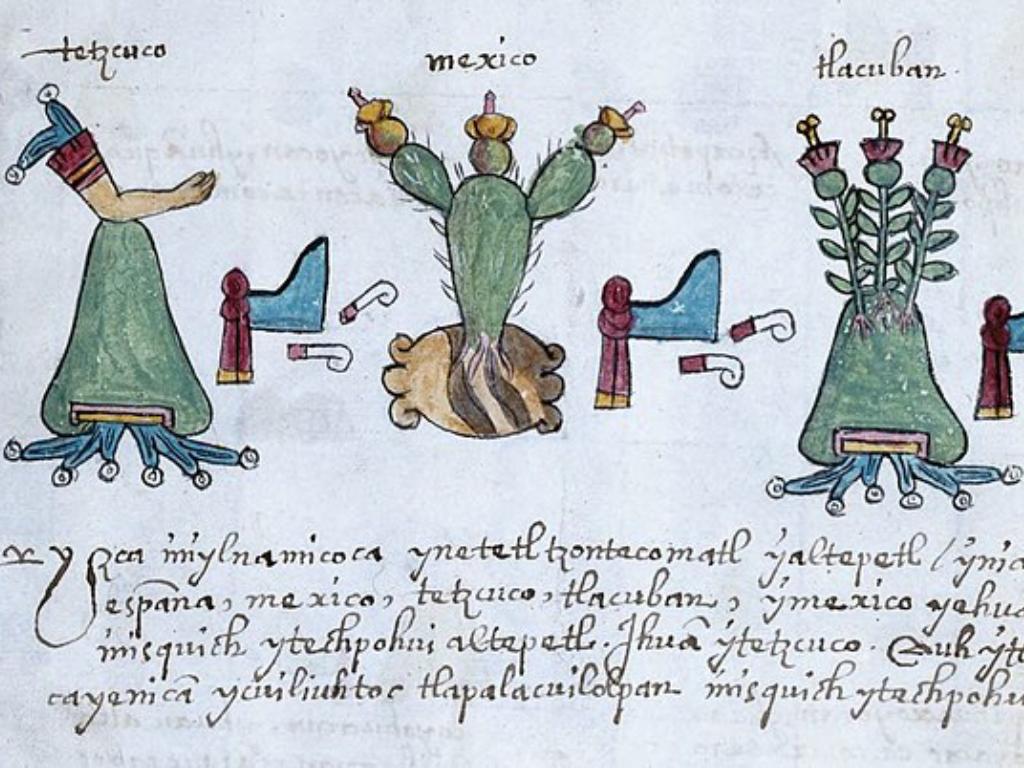 tetzcuco
mexico
tlacuban
Yzca inylnamicoca ynetetl tzontecomatl yaltepetl / ynic
españa, mexico, tetzcuco, tlacuban, ymexico yehua
inisquich ytechpohui altepetl. Ihuā ytetzcuco. Auh yte
cayenicā ycuiliuhtoc tlapalacuilolpan inisquich ytechpohui